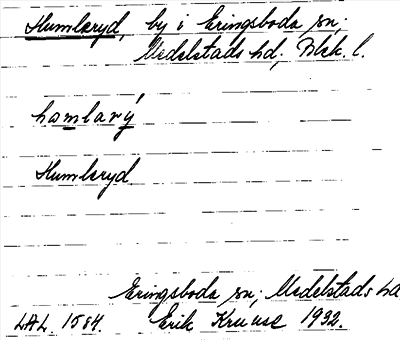 Humleryd, by i Eringsboda sn;
Medelstads hd, Blek. l.
homlarý
Humleryd
Eringsboda sn; Medelstads hd
LAL. 1584. Erik Kruuse 1932.